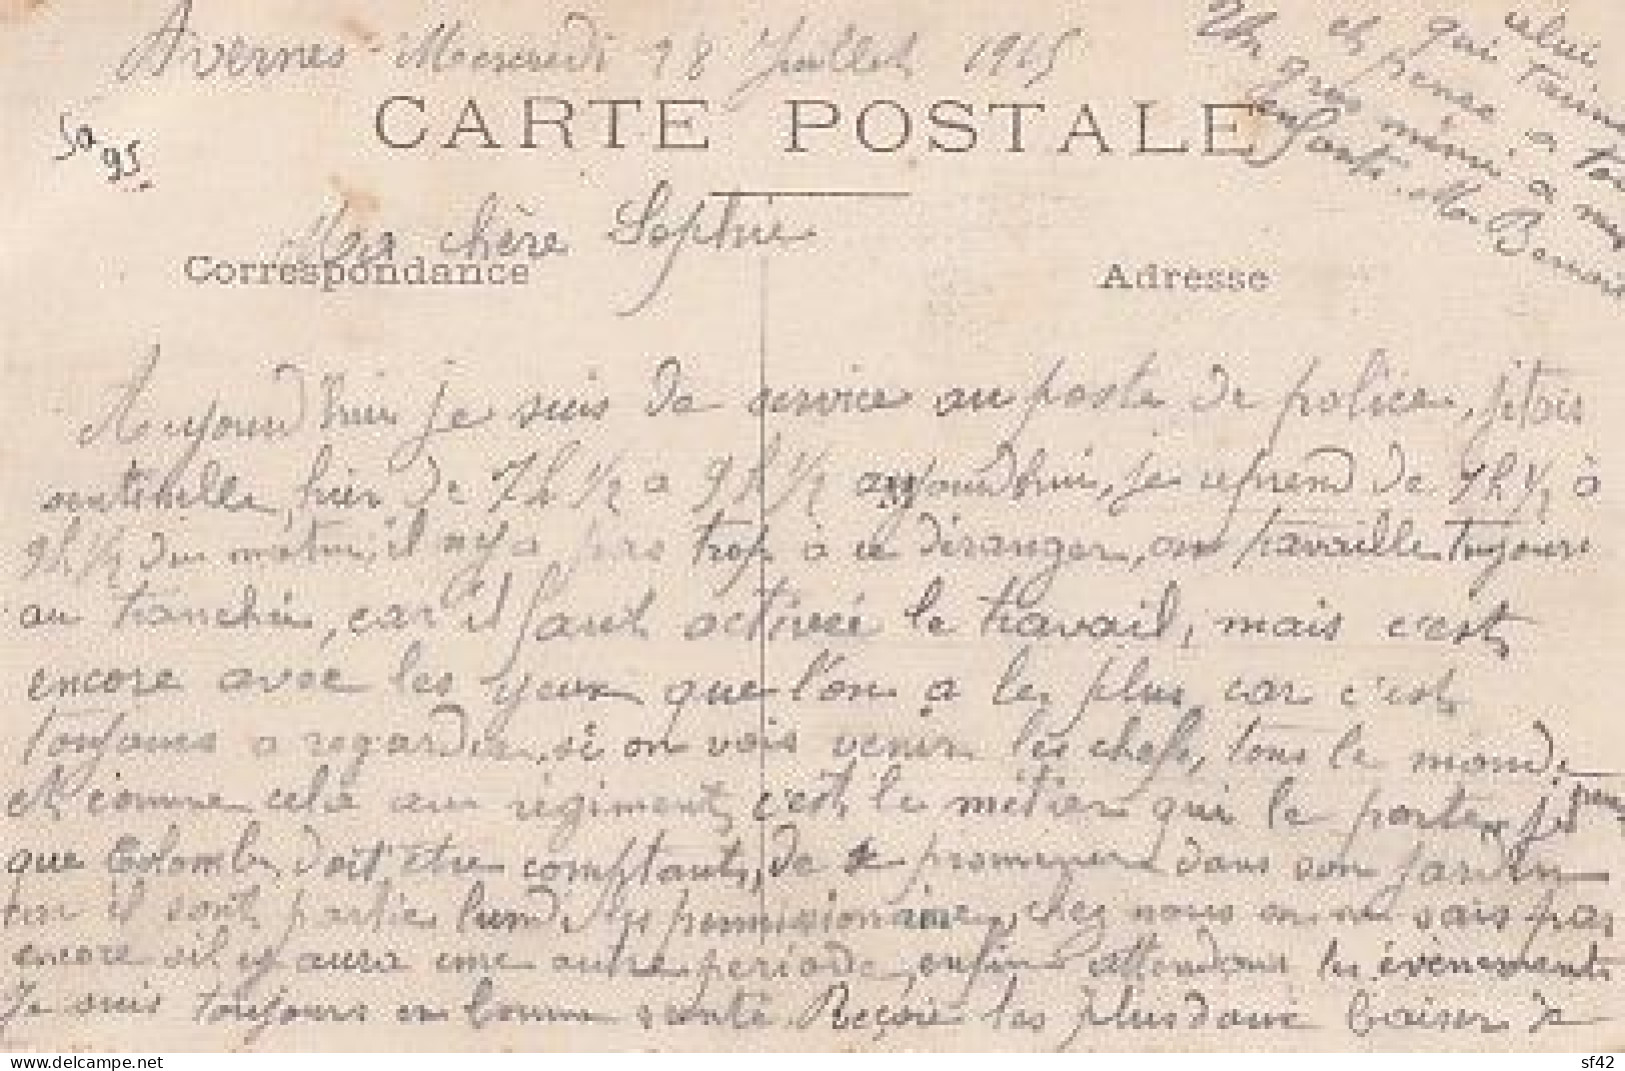 Avernes Mercredi 28 Juillet 1915
CARTE POSTALE
50
95
Ma chère Sophie
Correspondance
Adresse
Aujourdhui je suis de service au poste de police, jetais
sentinelle, hier de 7h 1/2 a 9h 1/2 aujourdhui, je reprend de 7h 1/2 à
9h 1/2 du matin, il n'y a pas trop à ce déranger, on travaille toujours
au tranchée, car il faut activée le travail, mais c'est
encore avec les yeux que l'on a le plus car c'est
toujours a regarder, si on vois venir les chefs, tous le monde
et comme cela au régiment, c'est le métier qui le porte, je pense
que Colombe doit être comptant, de promener dans son jardin
car il sont partie lundi les permissionaire, chez nous on ne sais pas
encore sil y aura une autre periode, enfin attendons les évènements
Je suis toujours en bonne santé. Reçoie les plus doux baiser de
celui
qui t'aime
et pense a toi
Un gros mimi a mes
enfants. Mon Benoit
sf42